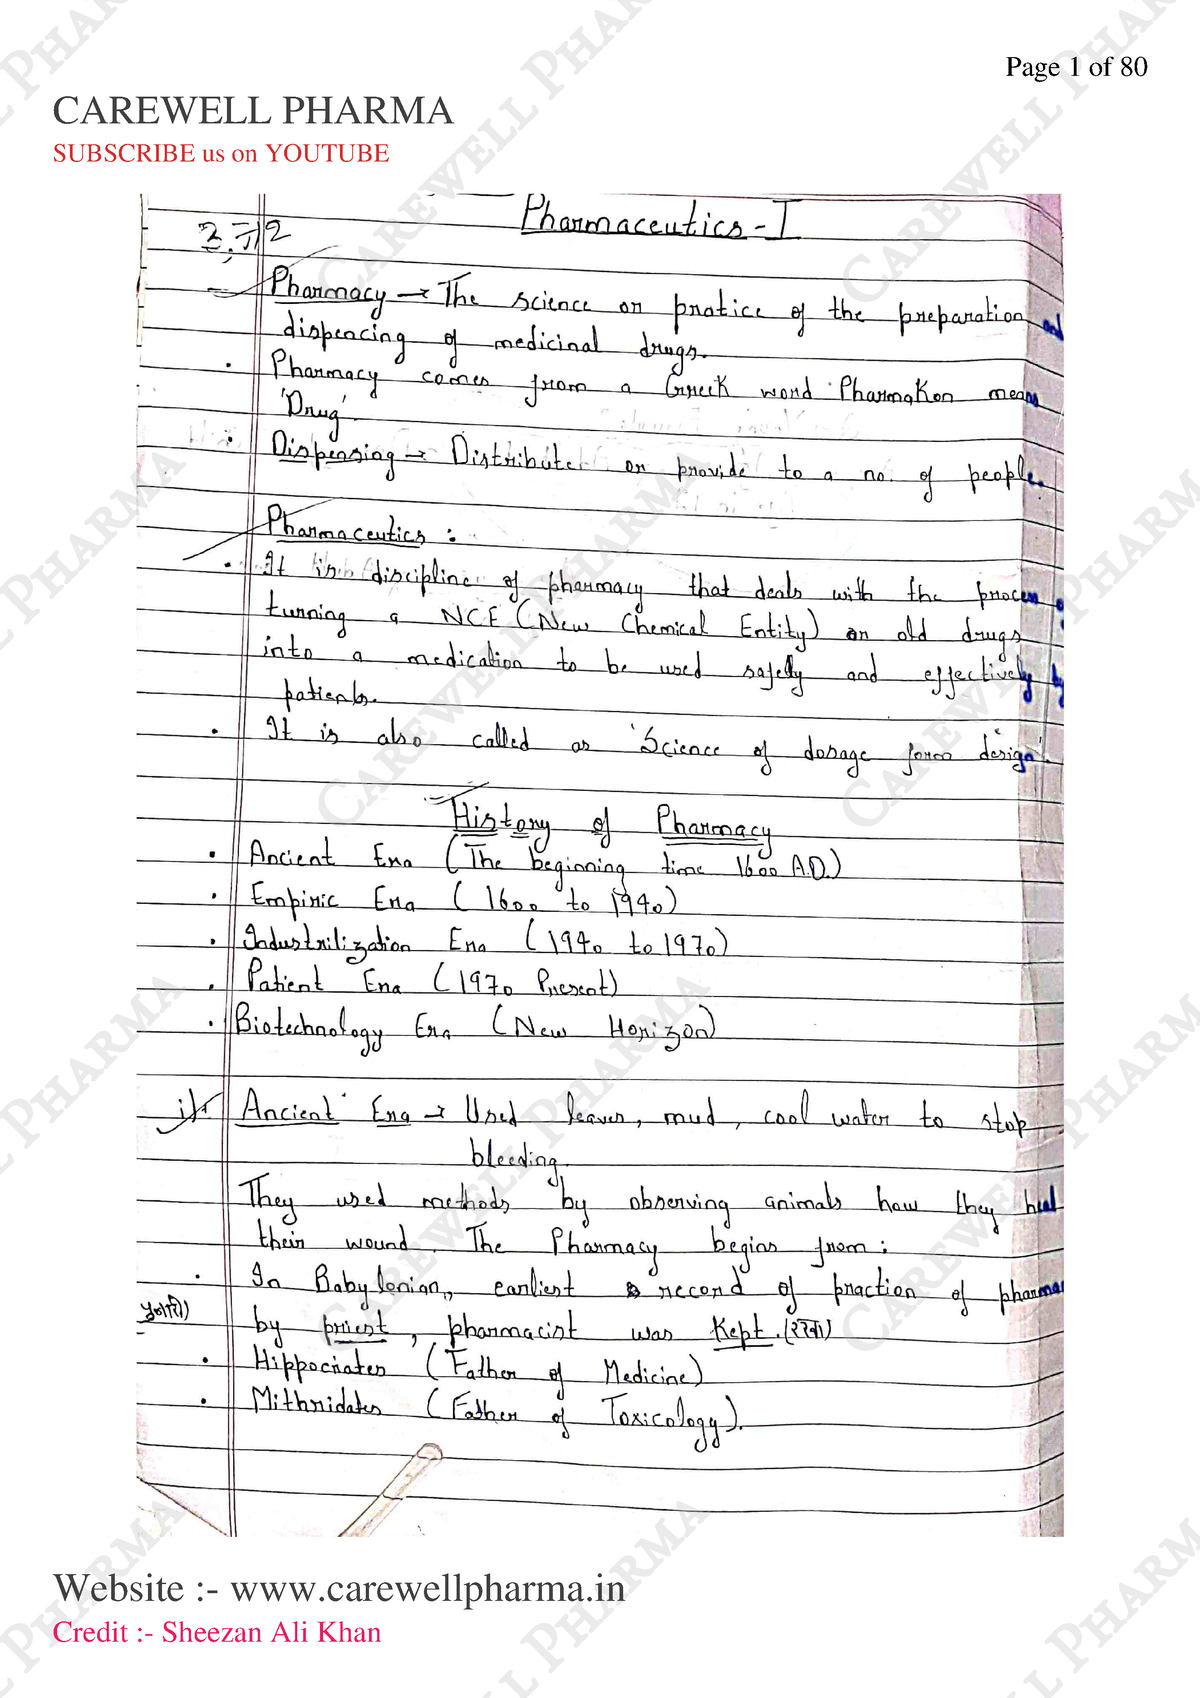 Page 1 of 80
CAREWELL PHARMA
SUBSCRIBE us on YOUTUBE
Pharmaceutics - I
Pharmacy → The science or pratice of the preparation and
dispencing of medicinal drugs.
• Pharmacy comes from a Greek word 'Pharmakon means
'Drug'
• Dispensing → Distribute or provide to a no. of people.
Pharmaceutics :
• It is discipline of pharmacy that deals with the process of
turning a NCE (New Chemical Entity) or old drugs
into a medication to be used safely and effectively by
patients.
• It is also called as 'Science of dosage form design'.
History of Pharmacy
• Ancient Era (The beginning time 1600 A.D.)
• Empiric Era (1600 to 1940)
• Industrilization Era (1940 to 1970)
• Patient Era (1970 Present)
• Biotechnology Era (New Horizon)
i) Ancient Era → Used leaves, mud, cool water to stop
bleeding.
They used methods by observing animals how they heal
their wound. The Pharmacy begins from:
• In Babylonian, earliest record of praction of pharma
पुजारी) by priest, pharmacist was Kept. (रखा)
• Hippocrates (Father of Medicine)
• Mithridates (Father of Toxicology).
Website :- www.carewellpharma.in
Credit :- Sheezan Ali Khan
CAREWELL PHARMA